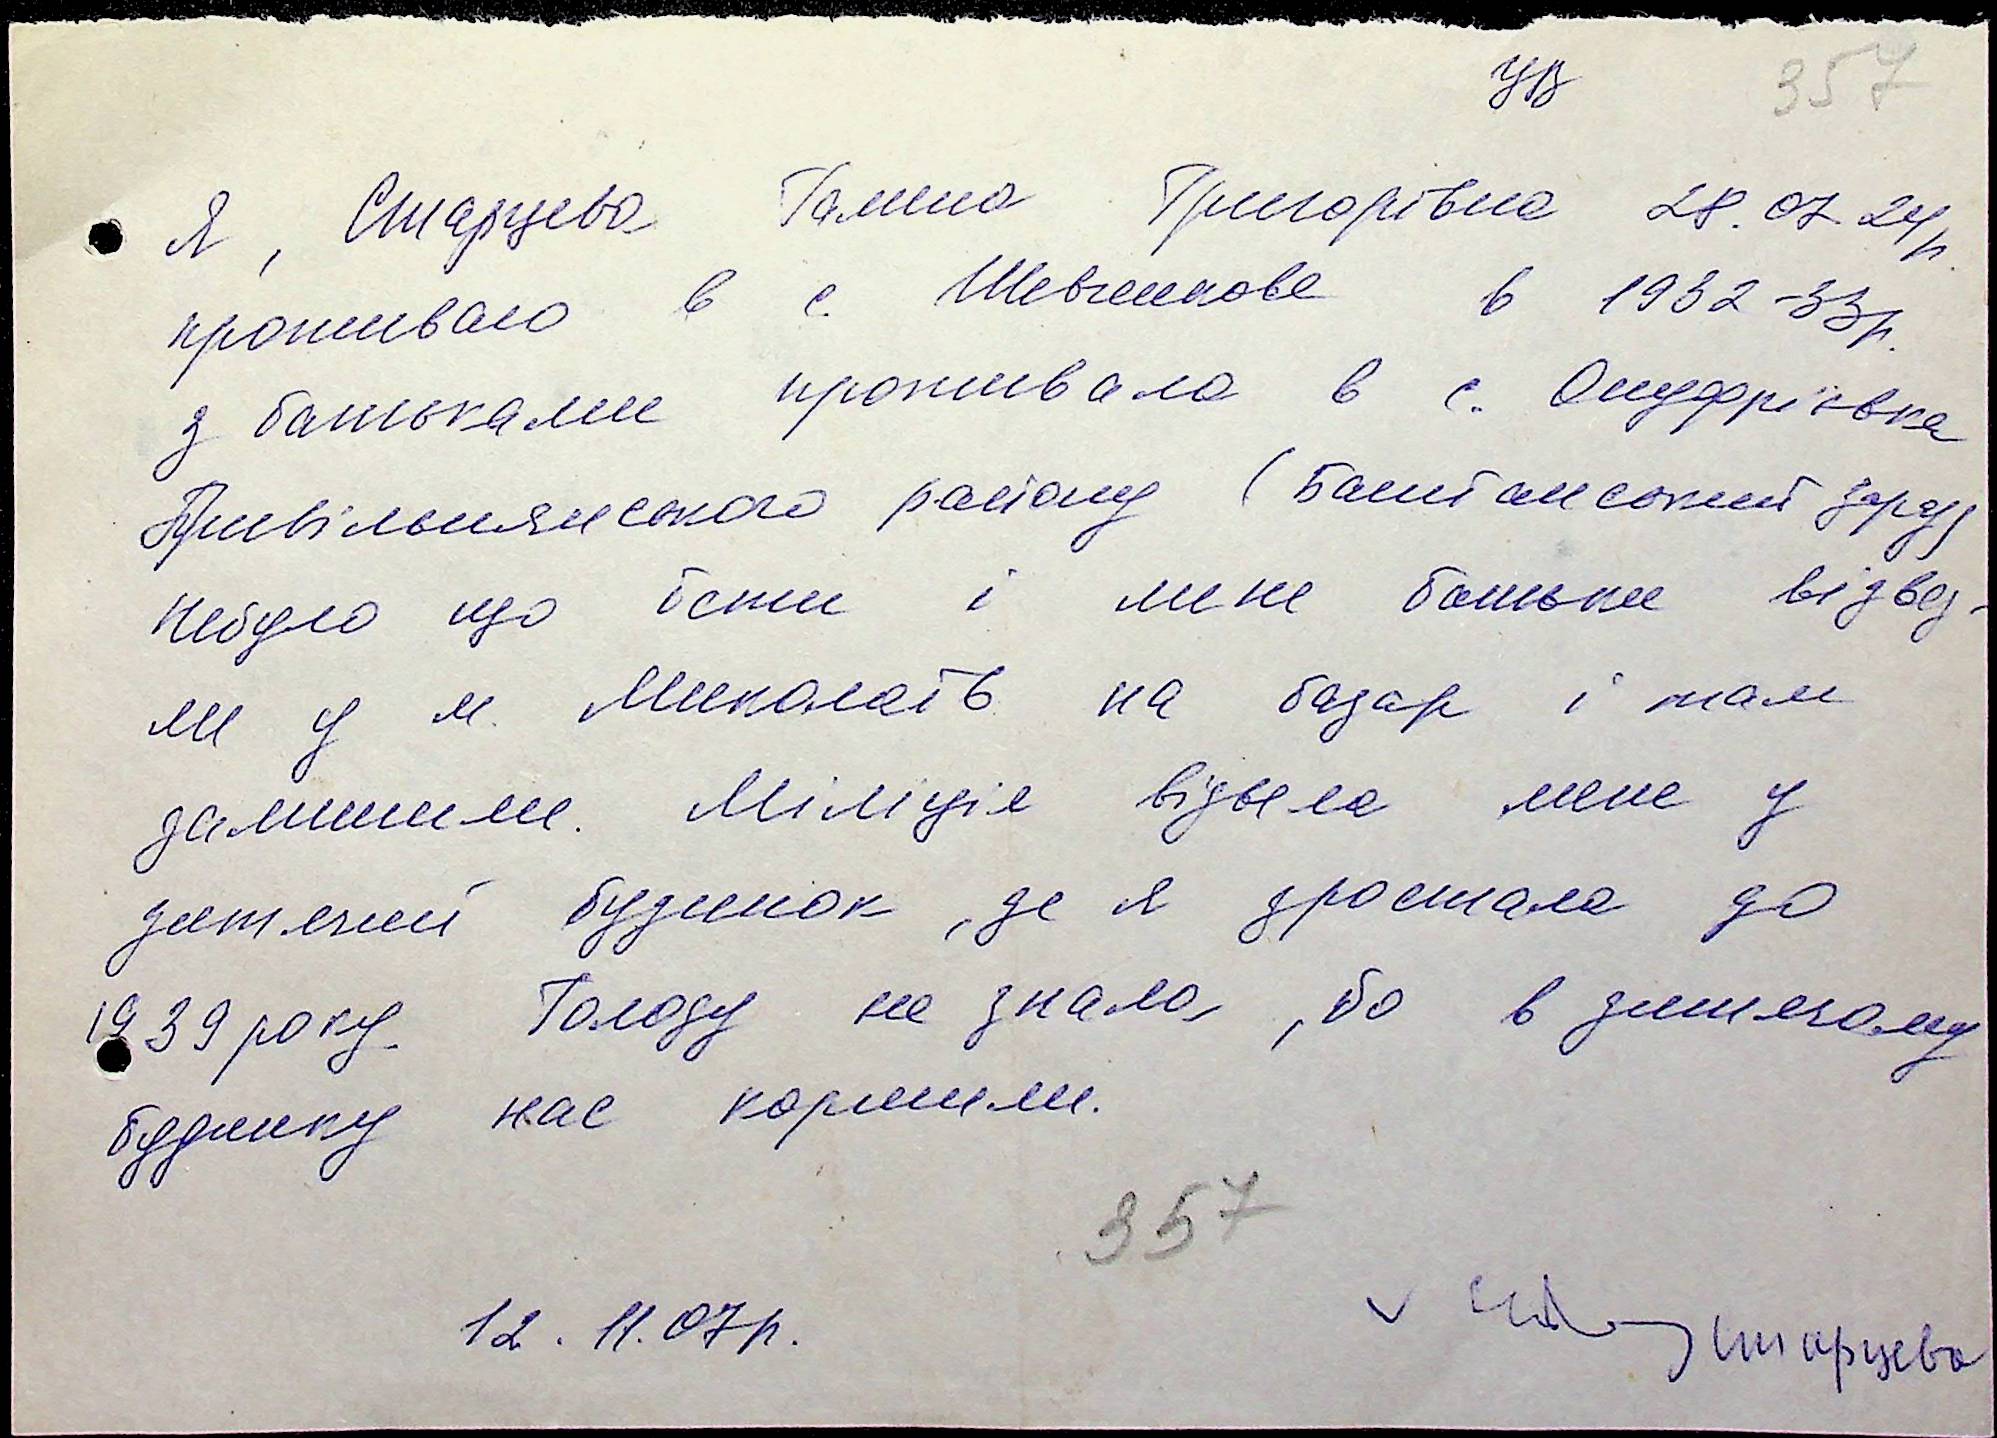 357
Я, Старцева Галина Григорівна 28.07.24р.
проживаю в с. Шевченкове в 1932-33р.
з батьками проживала в с. Онуфріївка
Привільнянського району (Баштанський зараз)
небуло що їсти і мене батьки відвез-
ли у м. Миколаїв на базар і там
залишили. Міліція відвела мене у
дитячий будинок, де я зростала до
1939 року. Голоду не знала, бо в дитячому
будинку нас кормили.
357
12.11.07р.
Старцева